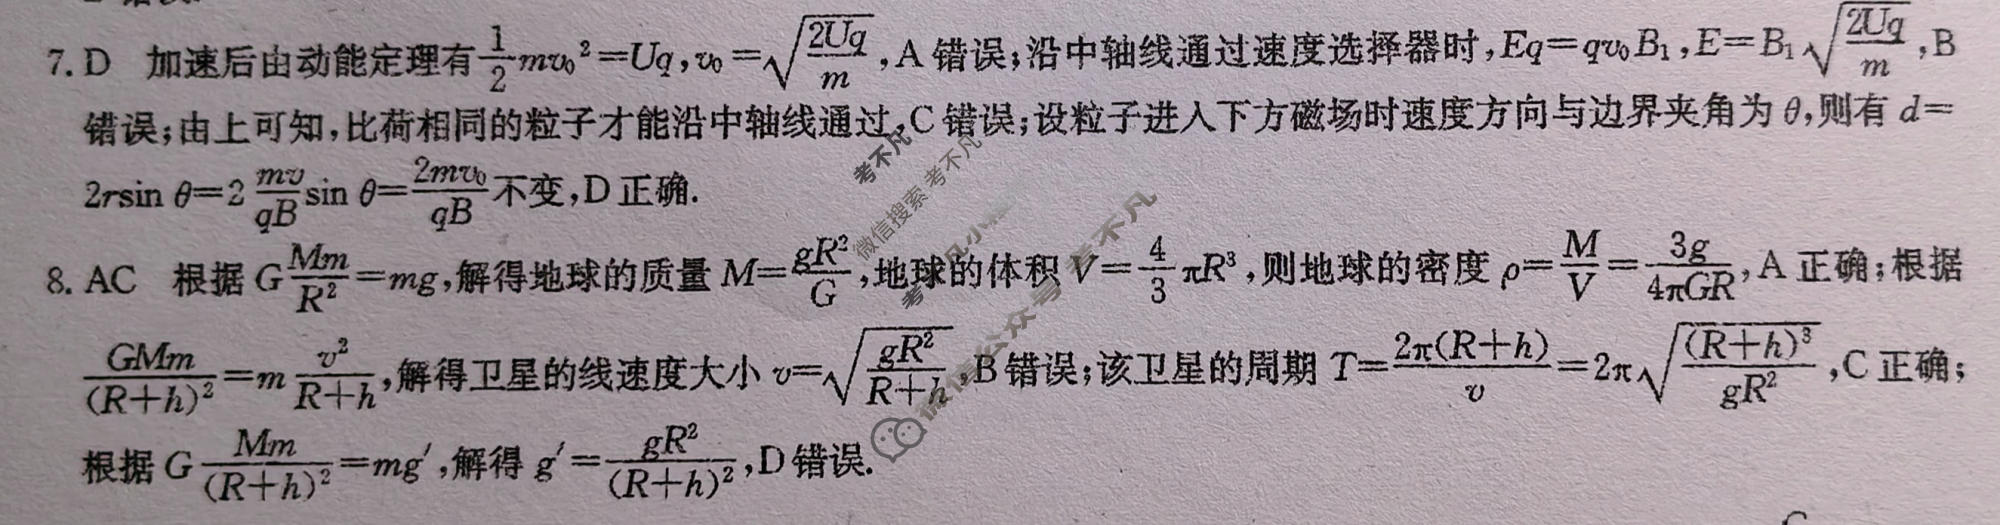 7. D 加速后由动能定理有$\frac{1}{2}mv_0{}^2=Uq$,$v_0=\sqrt{\frac{2Uq}{m}}$,A 错误;沿中轴线通过速度选择器时,$Eq=qv_0B_1$,$E=B_1\sqrt{\frac{2Uq}{m}}$,B
错误;由上可知,比荷相同的粒子才能沿中轴线通过,C 错误;设粒子进入下方磁场时速度方向与边界夹角为 θ,则有 $d=$
$2r\sin\theta=2\frac{mv}{qB}\sin\theta=\frac{2mv_0}{qB}$不变,D 正确.
8. AC 根据 $G\frac{Mm}{R^2}=mg$,解得地球的质量 $M=\frac{gR^2}{G}$,地球的体积 $V=\frac{4}{3}\pi R^3$,则地球的密度 $\rho=\frac{M}{V}=\frac{3g}{4\pi GR}$,A 正确;根据
$\frac{GMm}{(R+h)^2}=m\frac{v^2}{R+h}$,解得卫星的线速度大小 $v=\sqrt{\frac{gR^2}{R+h}}$,B 错误;该卫星的周期 $T=\frac{2\pi(R+h)}{v}=2\pi\sqrt{\frac{(R+h)^3}{gR^2}}$,C 正确;
根据 $G\frac{Mm}{(R+h)^2}=mg'$,解得 $g'=\frac{gR^2}{(R+h)^2}$,D 错误.
考不凡
微信搜索 考不凡
微信公众号 考不凡